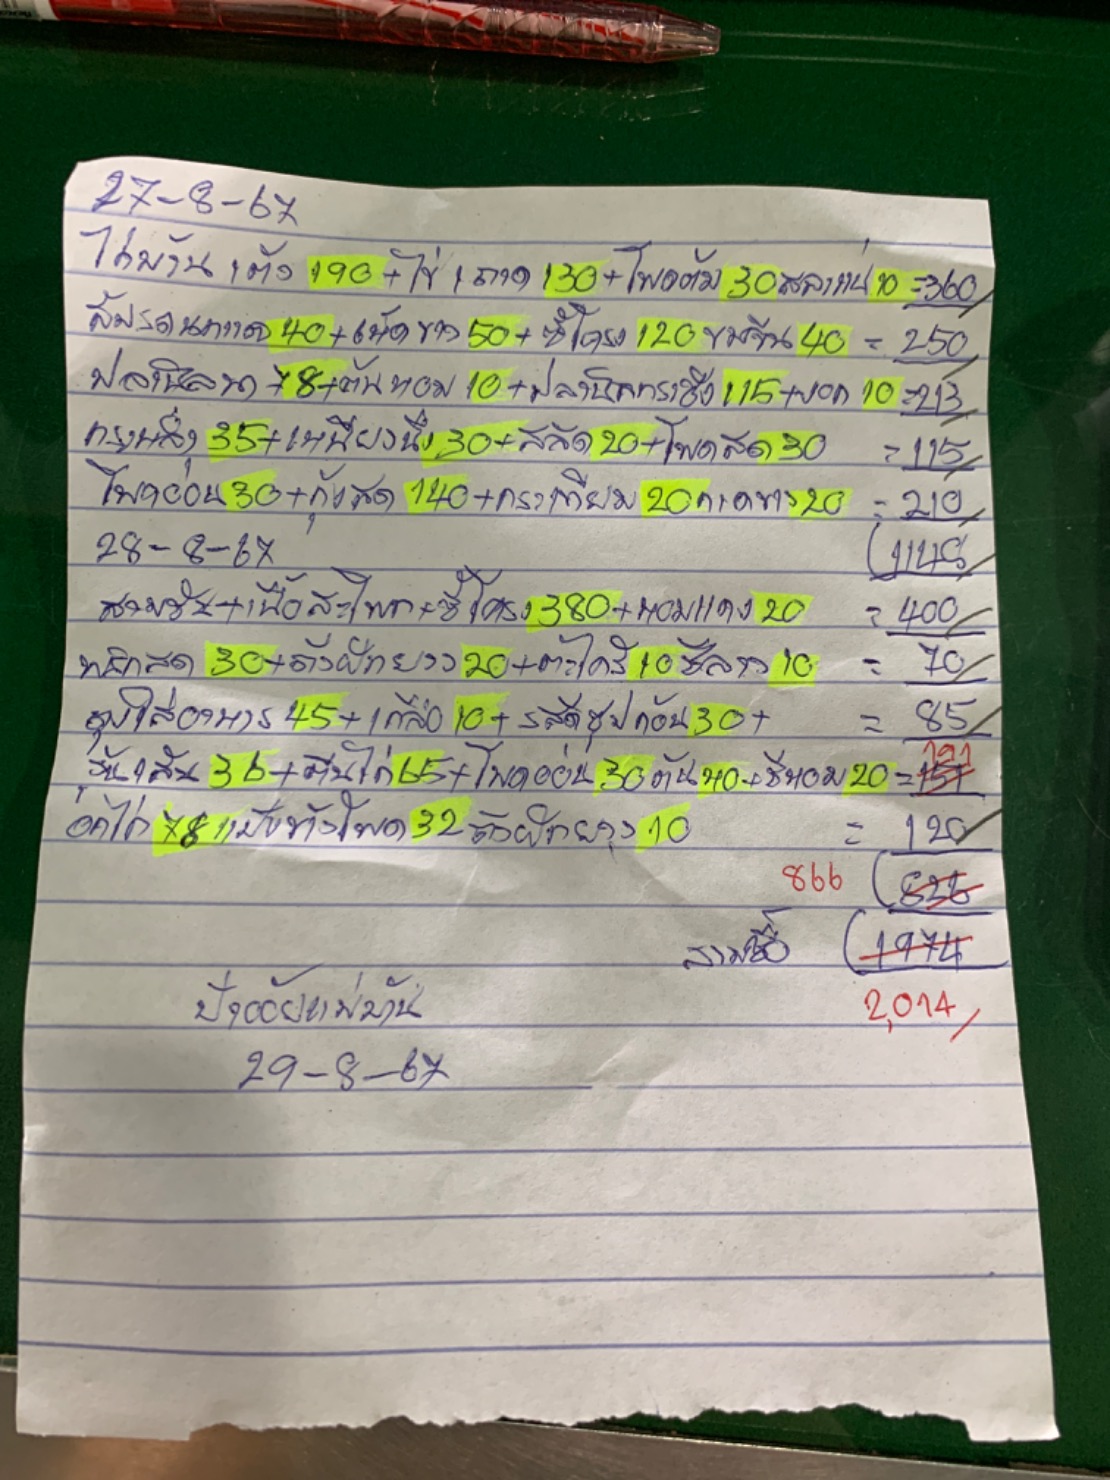 27-8-67
ไก่บ้าน 1 ตัว 190 + ไข่ 1 ถาด 130 + โพดต้ม 30 สลาแน่ 10 = 360
สับรดนกแกต 40 + เห็ดขาว 50 + ซี่โครง 120 ขมจีน 40 = 250
ปลานิล 78 + ต้นหอม 10 + ปลา 115 + 10 = 213
35 + เหนียวนึ่ง 30 + สลัด 20 + โพดสด 30 = 115
โพดอ่อน 30 + กุ้งสด 140 + กระเทียม 20 กาดขาว 20 = 210
28-8-67 1148
สามชั้น + เนื้อสะโพก + ซี่โครง 380 + หอมแดง 20 = 400
พริกสด 30 + ถั่วฝักยาว 20 + ตะไคร้ 10 ชีลาว 10 = 70
ถุงใส่อาหาร 45 + เกลือ 10 + รสดีซุปก้อน 30 + = 85
วุ้นเส้น 36 + ตีนไก่ 65 + โพดอ่อน 30 ต้น 40 + ชีหอม 20 = 151 191
อกไก่ 78 แป้งข้าวโพด 32 ถั่วฝักยาว 10 = 120
866 826
รวมซื้อ 1974
ปัจจัยแม่บ้าน 2,014
29-8-67